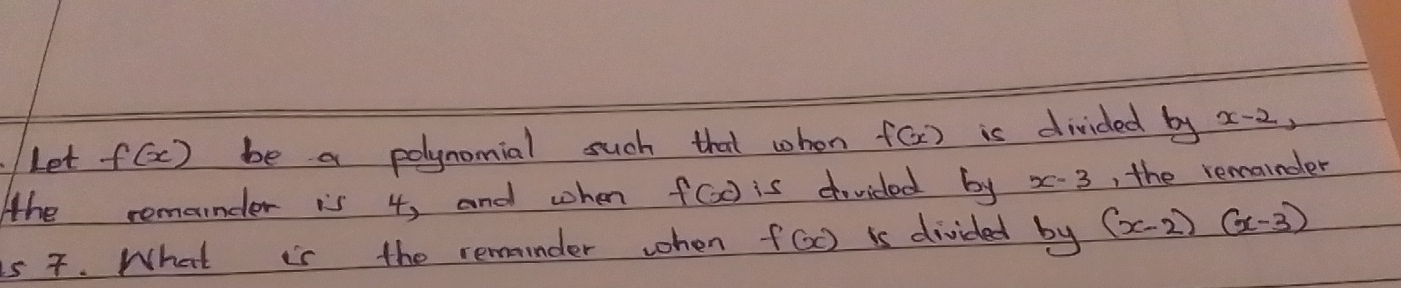 Let f(x) be a polynomial such that when f(x) is divided by x-2,
the remainder is 4, and when f(x) is divided by x-3, the remainder
is 7. What is the remainder when f(x) is divided by (x-2) (x-3)